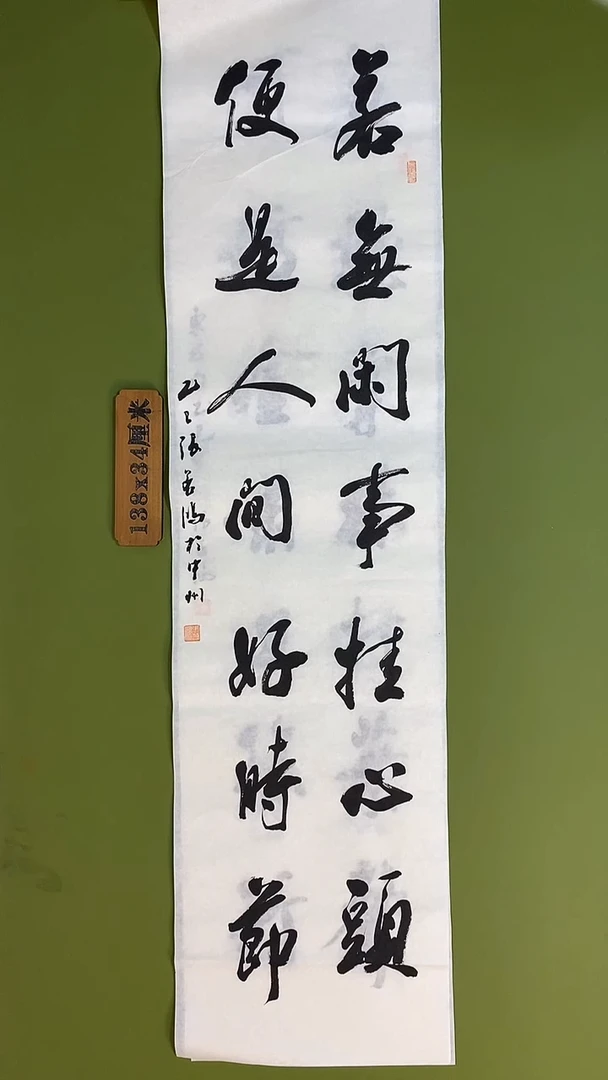 若無閑事挂心頭
便是人間好時節
乙巳張若鴻於中州
138x34厘米